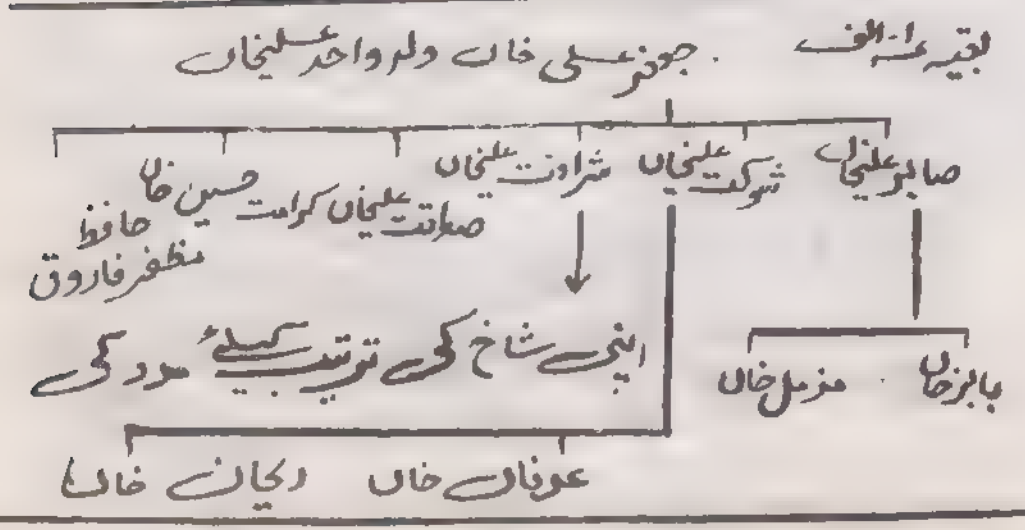 بقیہ الف
جوہر علی خاں ولد واحد علیخاں
صابر علیخاں شوکت علیخاں شرافت علیخاں صداقت علیخاں کرامت حسین خاں حافظ مظفر فاروق
اپنی شاخ کی ترتیب کیلئے مدد کی
بابر خاں مزمل خاں
عرفان خاں ریحان خاں